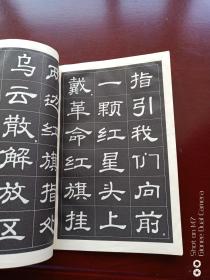 指引我们向前
一颗红星头上
戴革命红旗挂
两边红旗指处
乌云散解放区
Shot on M7
Gionee Dual Camera